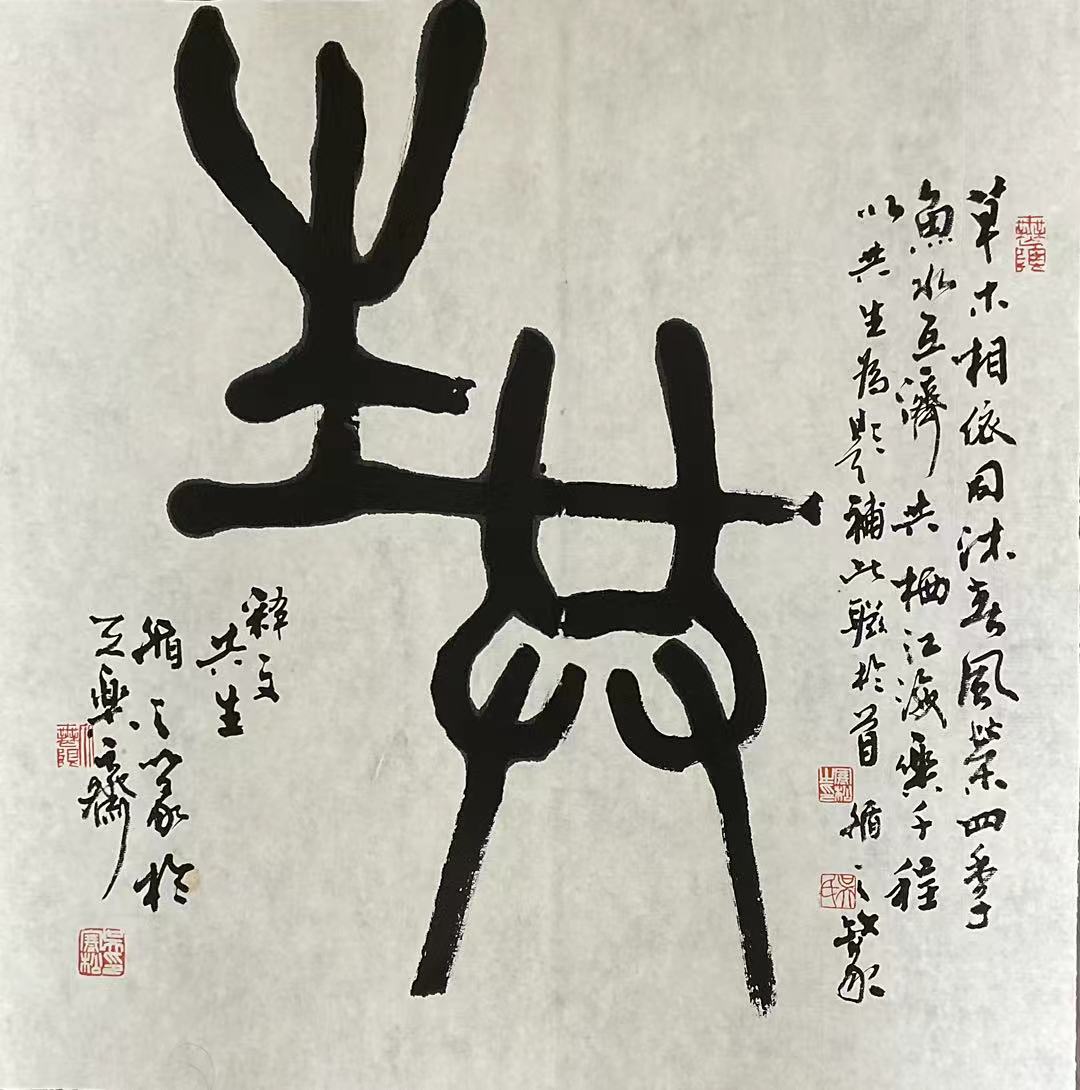 草木相依同沐春風榮四季
魚水互濟共栖江海樂千程
以共生為題補此聯於首 循之篆
共生
釋文
共生
循之篆於
樂齋
吳氏